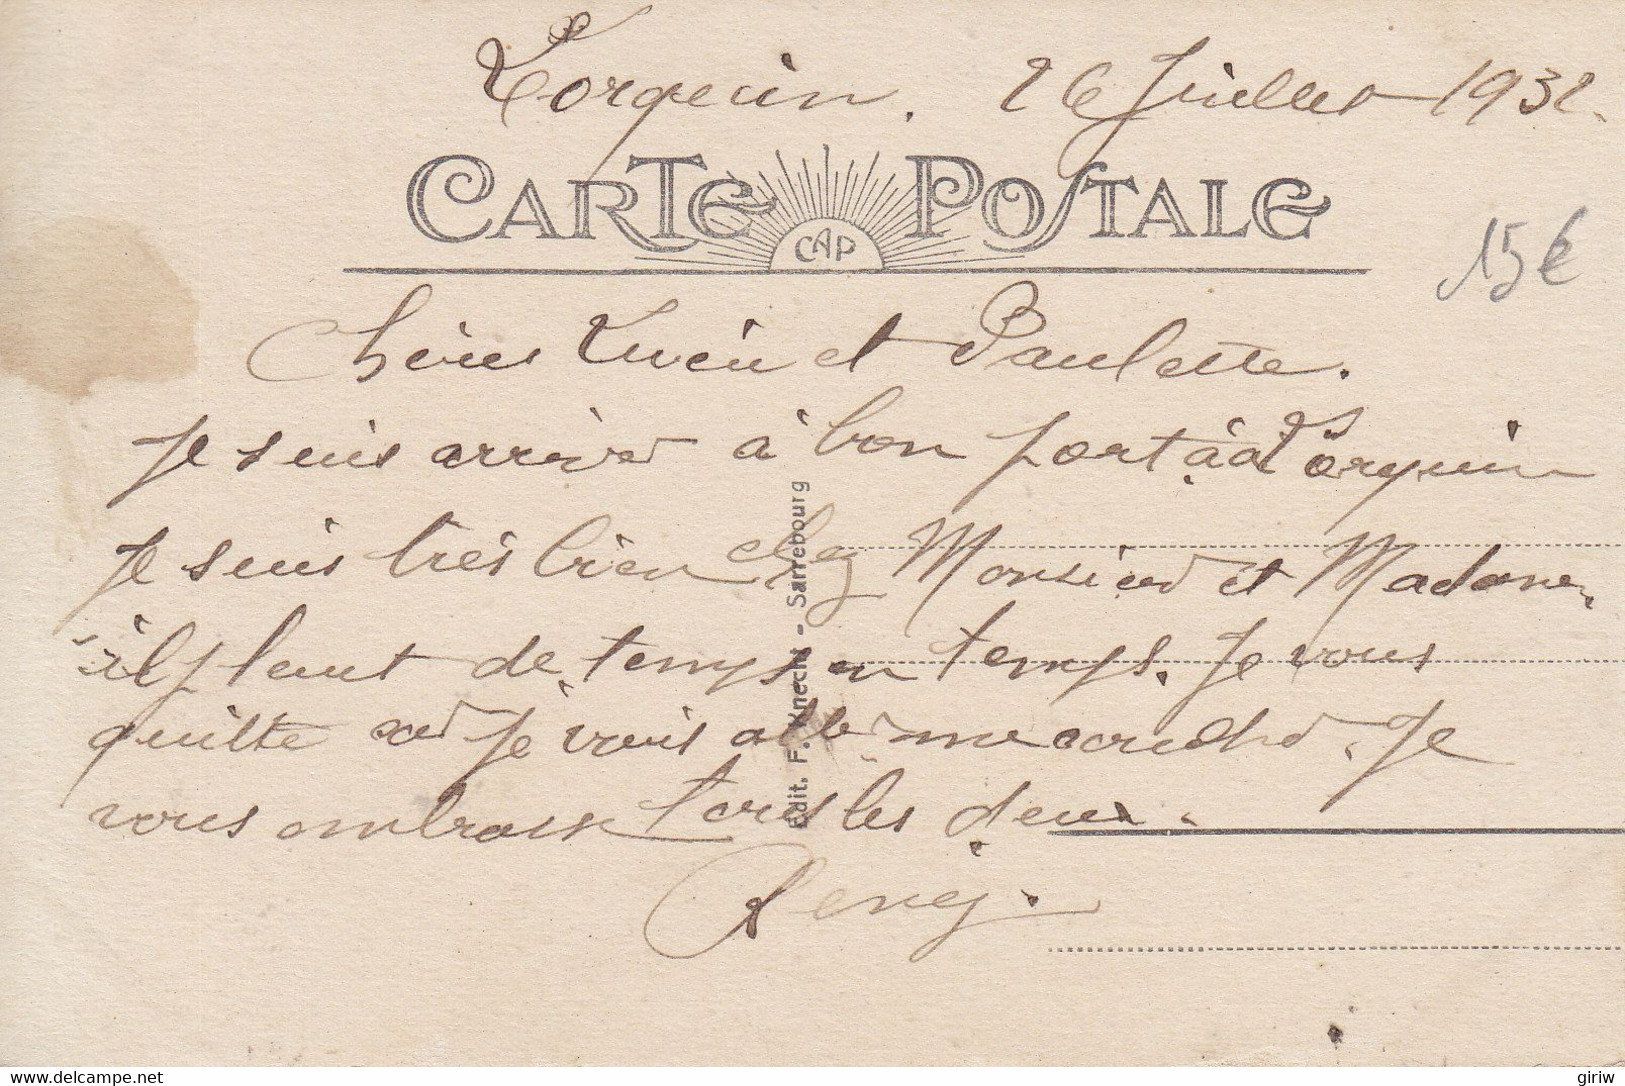 Lorquin. 26 Juillet 1932.
CARTE POSTALE
CAP
15€
Chères Lucien et Paulette.
Je suis arrivé à bon port à à Lorquin
Je suis très bien chez Monsieur et Madame.
s'il pleut de temps en temps. Je vous
quitte car Je vais alle me couché. Je
vous embrasse tous les deux.
Reney.
Edit. F. Knecht - Sarrebourg
delcampe.net
giriw